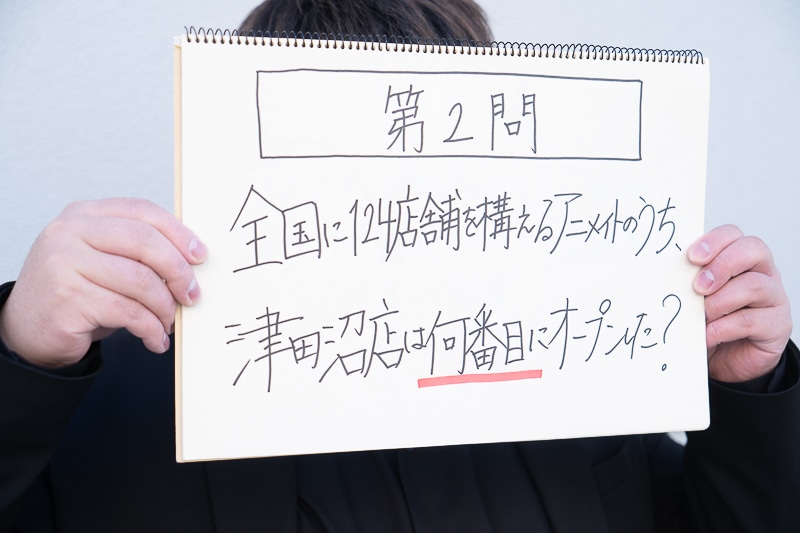 第2問
全国に124店舗を構えるアニメイトのうち、
津田沼店は何番目にオープンした?